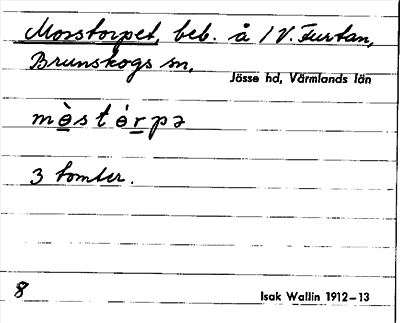 Mosstorpet, beb. å 1 V. Furtan,
Brunskogs sn,
Jösse hd, Värmlands län
mo̱̊̀sto̊̀ṟpə
3 tomter.
8
Isak Wallin 1912–13